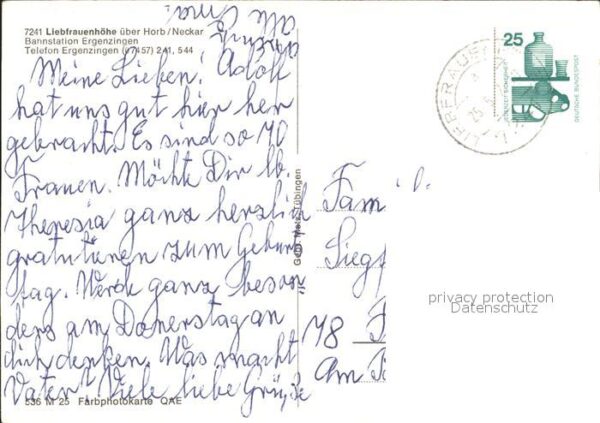 7241 Liebfrauenhöhe über Horb/Neckar
Bannstation Ergenzingen
Telefon Ergenzingen (07457) 241, 544
Meine Lieben! Adolf
hat uns gut hier her
gebracht. Es sind so 70
Frauen. Möchte Dir lb.
Theresia ganz herzlich
gratulieren zum Geburts
tag. Werde ganz beson
ders am Donerstag an
dich denken. Was macht
Vater? Viele liebe Grüße
alle
536 M 25 Farbphotokarte QAE
Gebr. Metz, Tübingen
25
DEUTSCHE BUNDESPOST
Fam
Siegf
78 F
Am
privacy protection
Datenschutz